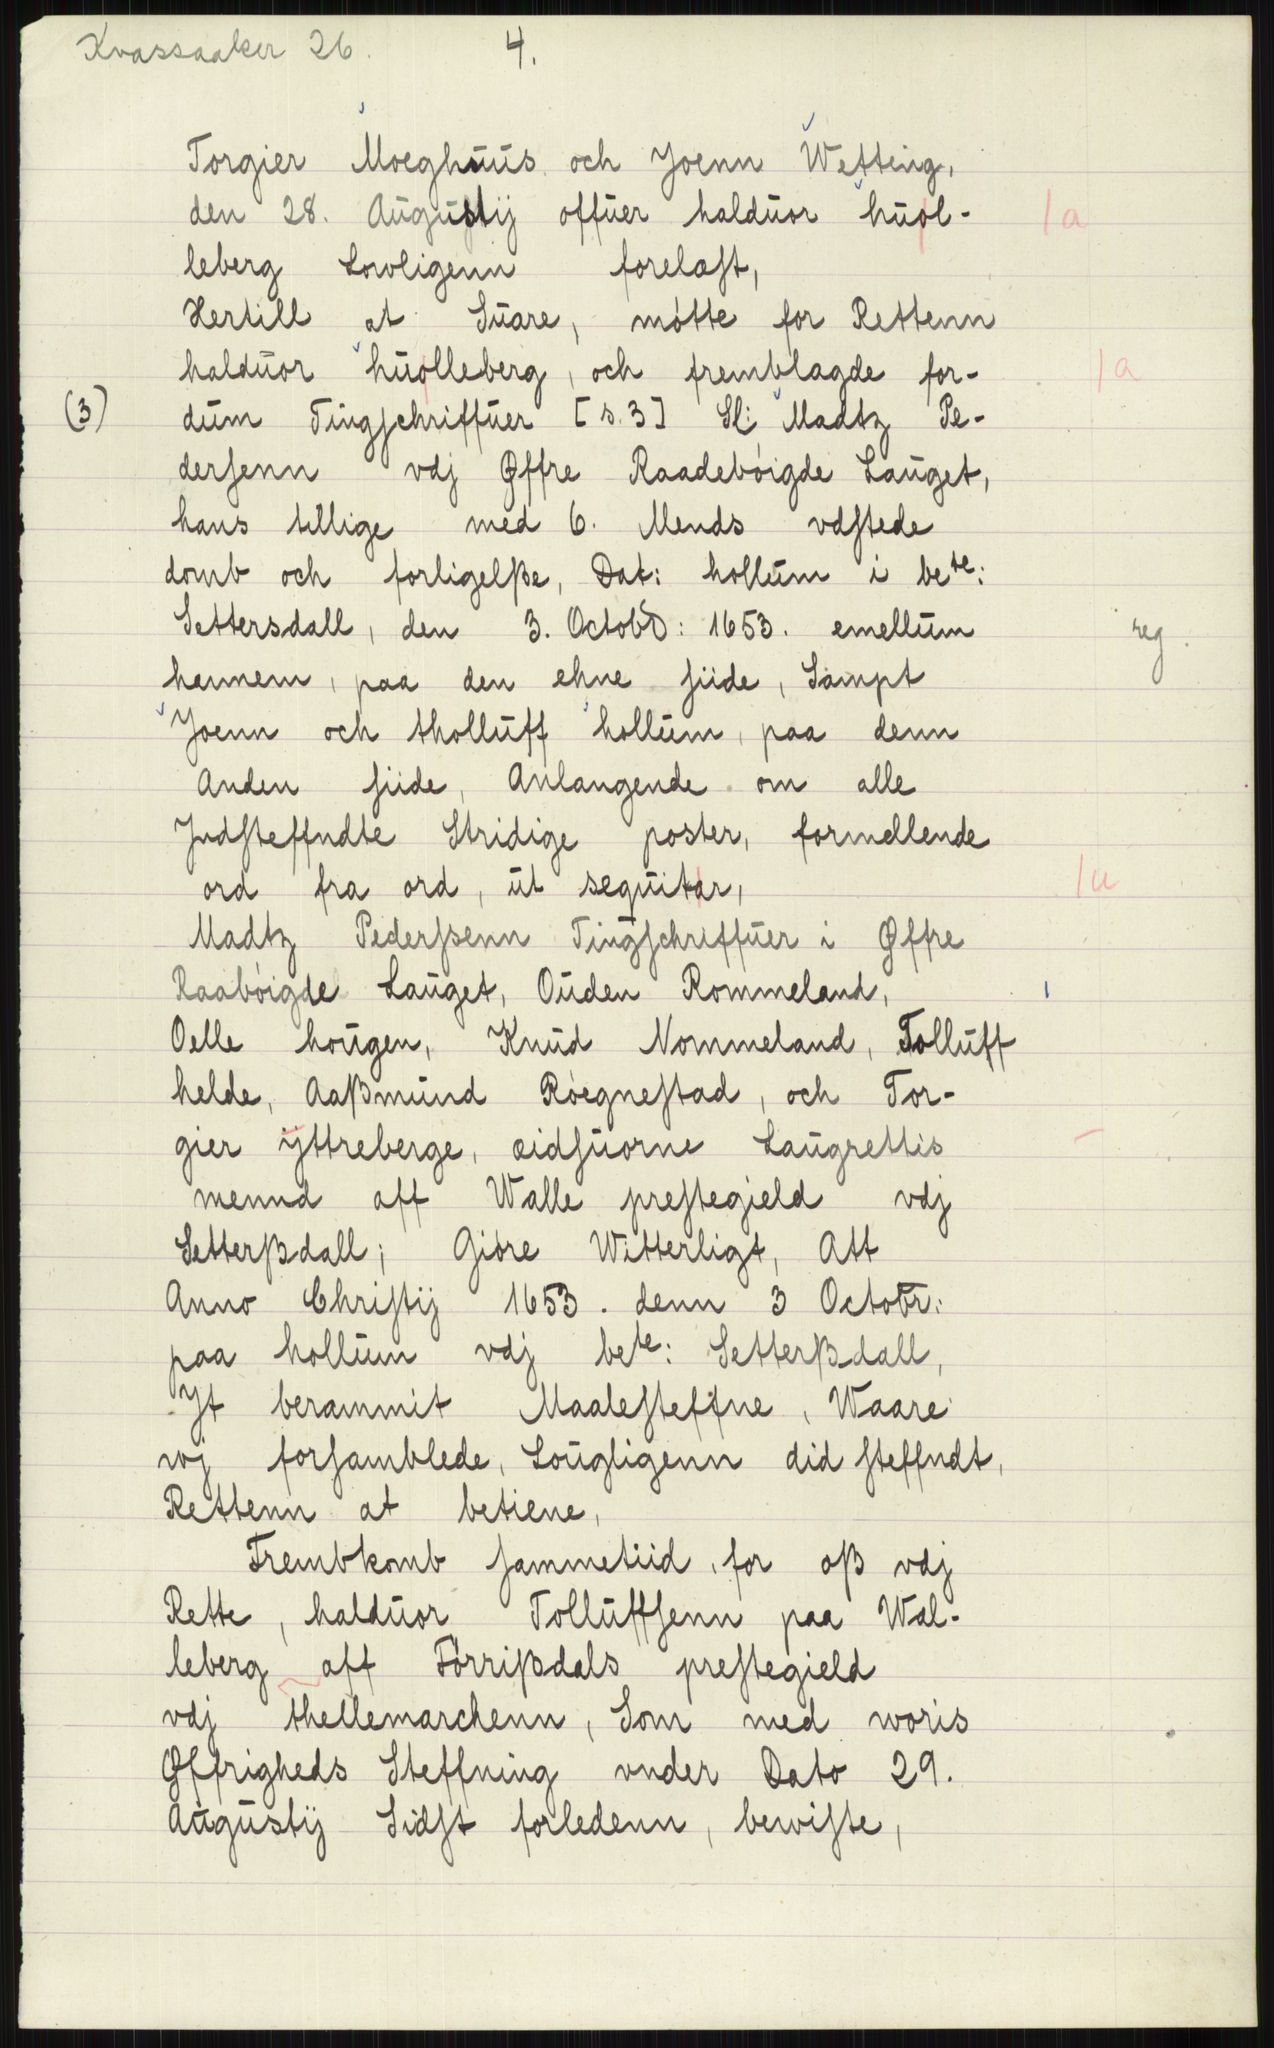 Kvassaaker 26.
4.
Torgier Moeghuus och Joenn Wetting,
den 28. Augustij offuer halduor huol- |a
leberg Lowligenn forelæst,
Hertill at Suare, møtte for Rettenn
halduor huolleberg, och fremblagde for- |a
(3) dum Tingschriffuer [s. 3] Sl: Madtz Pe-
dersenn vdj Øffre Raadebøigde Lauget,
hans tillige med 6. Mends vdstede
domb och forligelße, Dat: hollum i bete:
Settersdall, den 3. Octobr: 1653. emellum reg.
hannem, paa den ehne siide, Sampt
Joenn och tholluff hollum, paa denn
Anden siide, Anlangende om alle
Jndsteffndte Stridige poster, formellende
ord fra ord, ut sequitar, |u
Madtz Pederssenn Tingschriffuer i Øffre
Raabøigde Lauget, Ouden Rommeland,
Oelle hougen, Knud Nommeland, Tolluff
helde, Aaßmund Røegnestad, och Tor-
gier ÿttreberge, eidsuorne Laugrettis
mennd aff Walle prestegield vdj
Setterßdall; Giøre Witterligt, Att
Anno Christij 1653. denn 3 Octobr:
paa hollum vdj bete: Setterßdall,
Jt berammit Maalesteffne, Waare
wj forsamblede, Lougligenn did steffndt,
Rettenn at betiene,
Frembkomb sammetiid, for oß vdj
Rette, halduor Tolluffsenn paa Wal-
leberg aff Førrißdals prestegield
vdj thellemarchenn, Som med woris
Øffrigheds Steffning vnder Dato 29.
Augustij Sidst forledenn, bewiste,